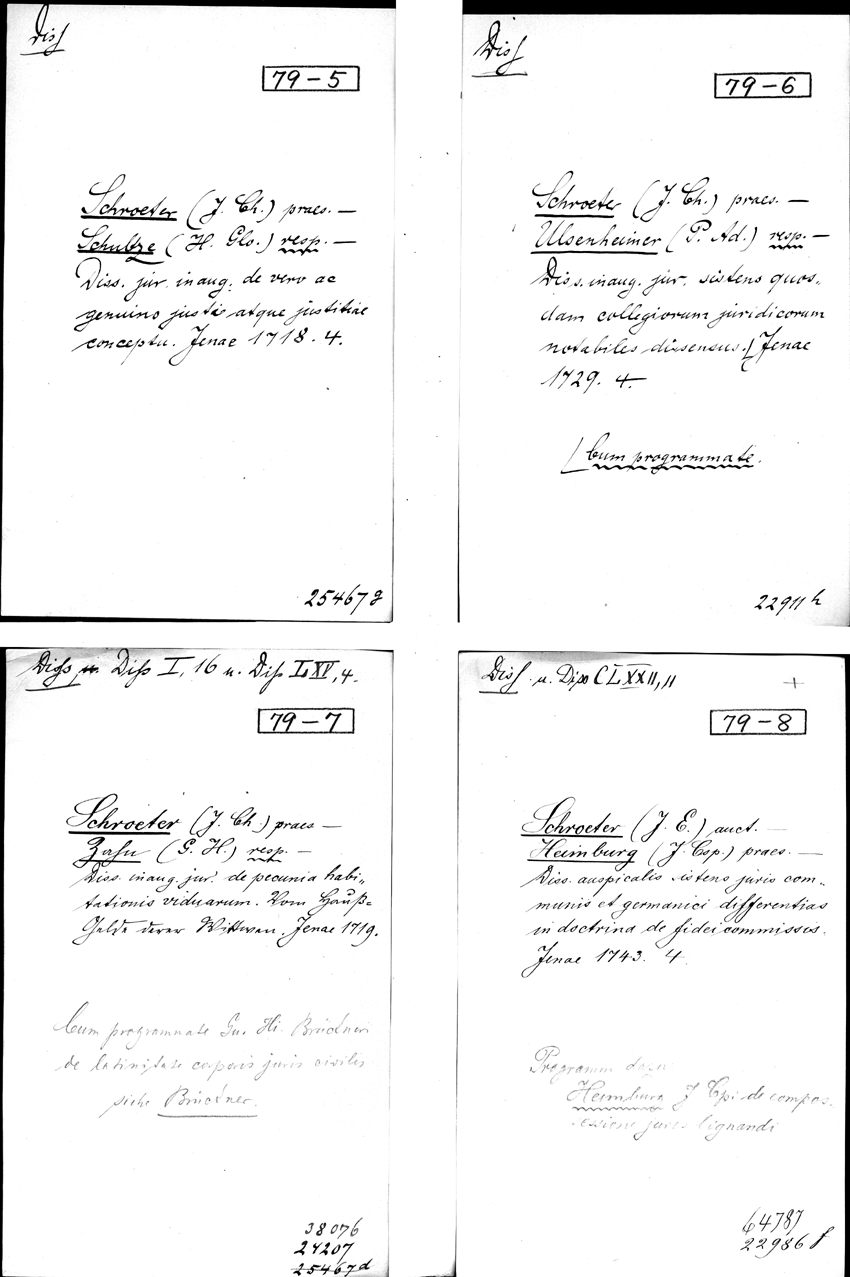 Diss
79-5
Schroeter (J. Ch.) praes. —
Schultze (H. Glo.) resp. —
Diss. jur. inaug. de vero ac
genuino justi atque justitiae
conceptu. Jenae 1718. 4.
25467 g
Diss
79-6
Schroeter (J. Ch.) praes. —
Ulsenheimer (P. Ad.) resp. —
Diss. inaug. jur. sistens quos„
dam collegiorum juridicorum
notabiles dissensus. Jenae
1729. 4.
Cum programmate.
22911 h
Diss u. Diss I, 16 u. Diss LXV, 4.
79-7
Schroeter (J. Ch.) praes —
Zahn (G. H.) resp. —
Diss. inaug. jur. de pecunia habi„
tationis viduarum. Vom Hauß=
Gelde derer Wittwen. Jenae 1719.
Cum programmate Gu. Hi. Brückneri
de latinitate corporis juris civilis
siehe Brückner.
38076
24207
25467 d
Diss u. Diss CLXXII, 11
+
79-8
Schroeter (J. E.) auct. —
Heimburg (J. Csp.) praes. —
Diss. auspicalis sistens juris com„
munis et germanici differentias
in doctrina de fideicommissis.
Jenae 1743. 4.
Programm dazu
Heimburg J Cpi de compos„
sessione juris lignandi
64787
22986 f